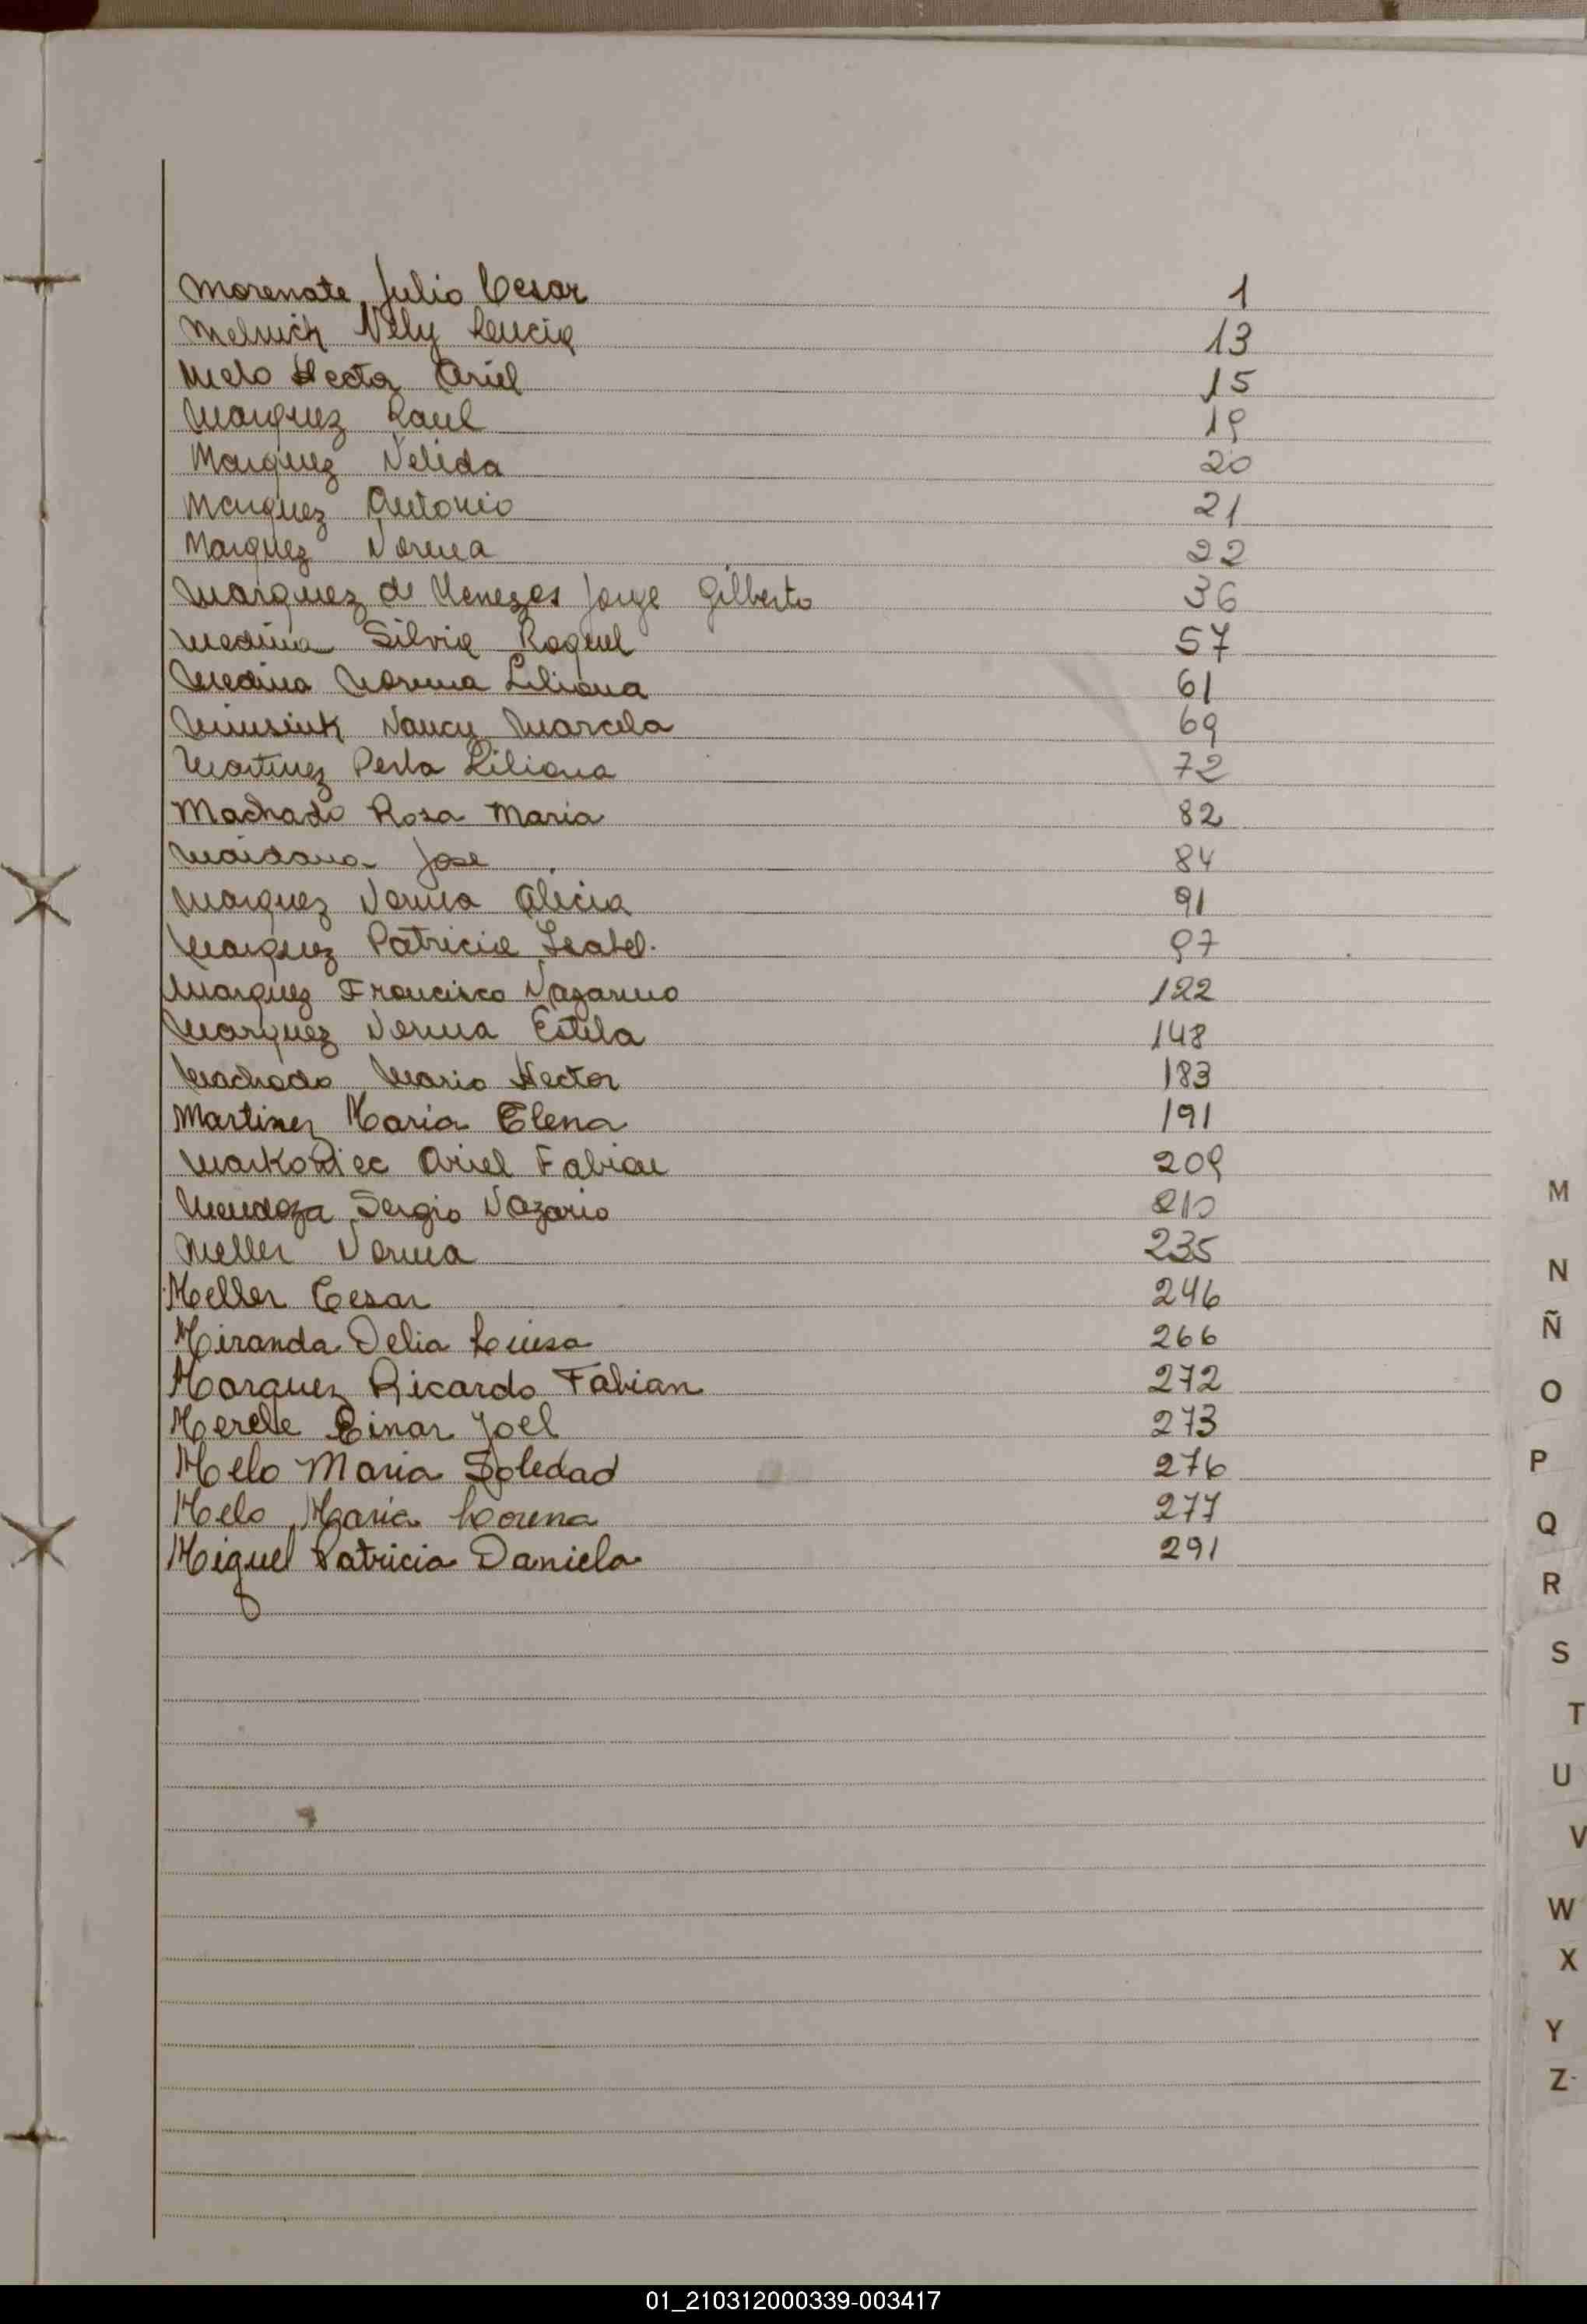 Morenate, Julio Cesar 1
Melnich Nely Lucia 13
Melo Hector Ariel 15
Marquez Raul 19
Marquez Nelida 20
Marquez Antonio 21
Marquez Norma 22
Marquez de Menezes Jorge Gilberto 36
Medina Silvia Raquel 57
Medina Norma Liliana 61
Nancy Marcela 69
Martinez Perla Liliana 72
Machado Rosa Maria 82
Maidana Jose 84
Marquez Norma Alicia 91
Marquez Patricia Isabel. 97
Marquez Francisco Nazareno 122
Marquez Norma Estela 148
Machado Mario Hector 183
Martinez Maria Elena 191
Ariel Fabian 209
Mendoza Sergio Nazario 210
Meller Norma 235
Meller Cesar 246
Miranda Delia Luisa 266
Marquez Ricardo Fabian 272
Merele Einar Joel 273
Melo Maria Soledad 276
Melo, Maria Lorena 277
Miguel Patricia Daniela 291
M
N
Ñ
O
P
Q
R
S
T
U
V
W
X
Y
Z
01_210312000339-003417